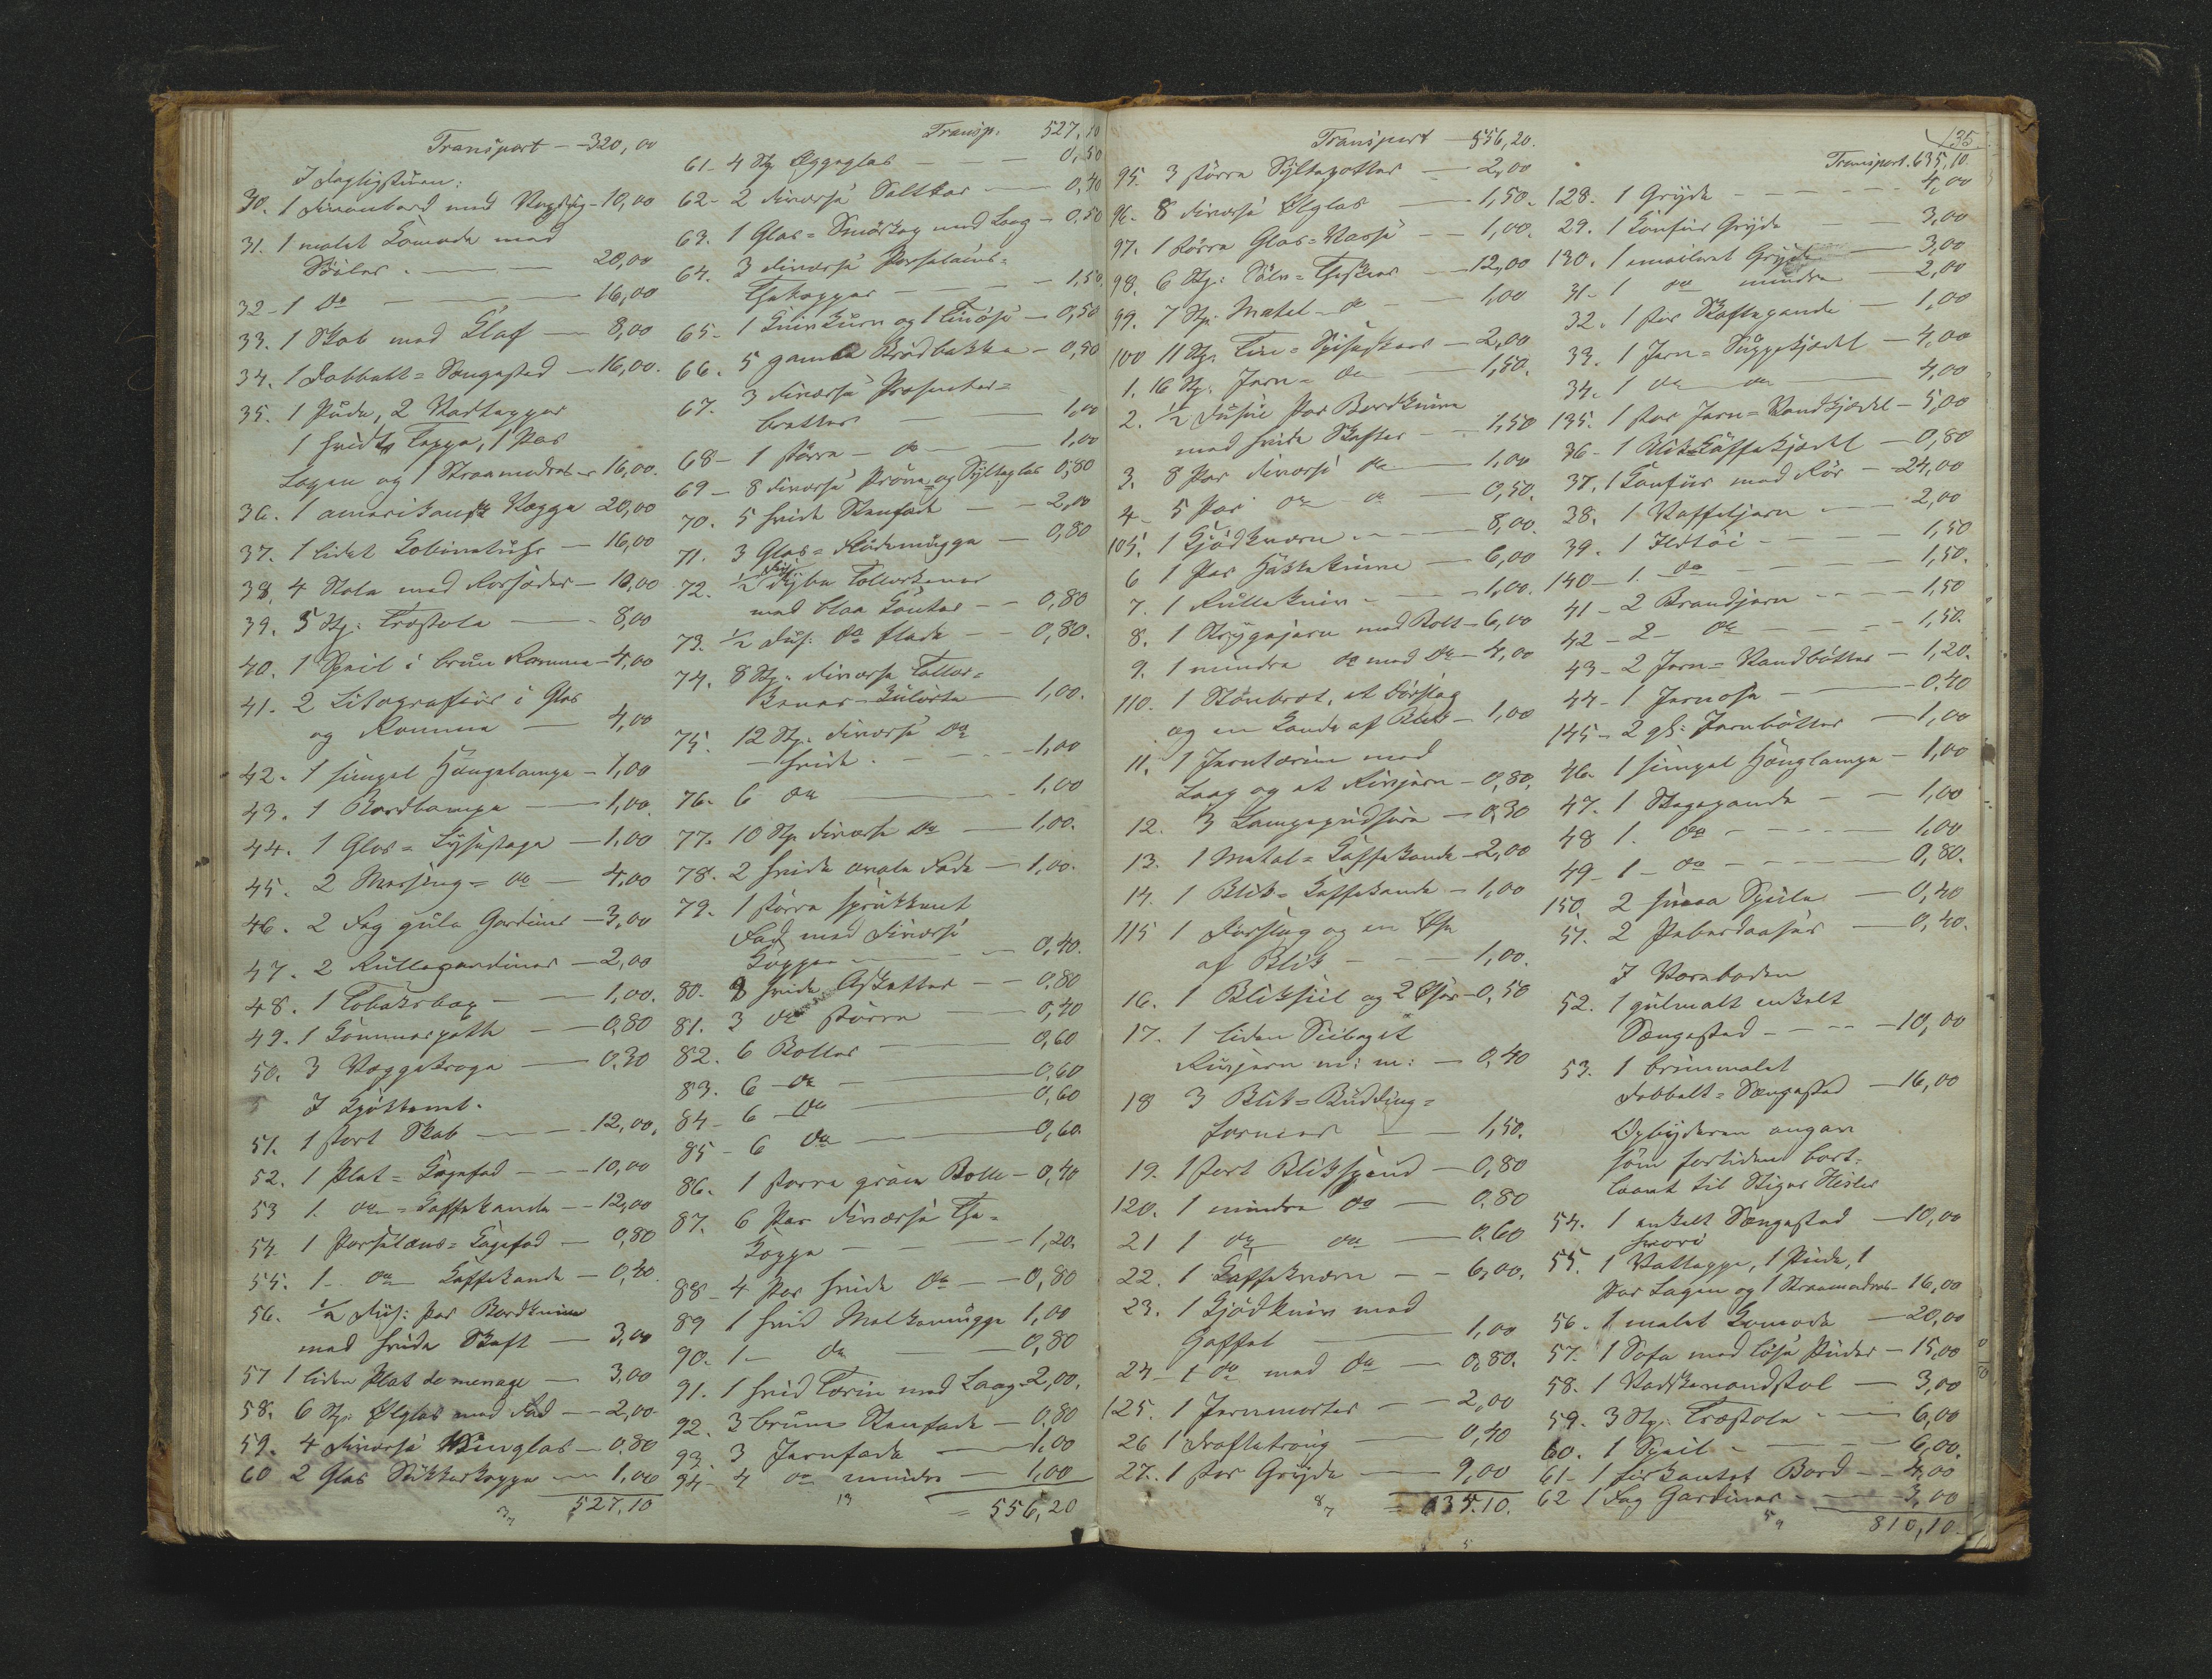 Transport — 320,00
I Dagligstuen:
30. 1 Divanbord med Voxdug - 10,00
31. 1 malet Komode med
Söiler — 20,00
32 - 1 do — 16,00
33. 1 Skab med Glas — 8,00
34. 1 Dobbelt = Sengested — 16,00.
35. 1 Pude, 2 Vadtepper
1 hvidt Teppe, 1 Par
Lagen og 1 Straamadras - 16,00.
36. 1 amerikansk Vogge 20,00
37. 1 lidet Kobinetuhr — 16,00
38. 4 Stole med Rorseder - 10,00
39. 5 Stp: Træstole — 8,00
40. 1 Speil i brun Ramme - 4,00
41. 2 Litografier i Glas
og Ramme — 4,00
42. 1 simpel Hængelampe - 1,00
43. 1 Bordlampe — 1,00
44. 1 Glas = Lysestage — 1,00
45. 2 Messing = do — 4,00
46. 2 Fag gule Gardiner - 3,00
47. 2 Rullegardiner — 2,00
48. 1 Tobaksbox — 1,00.
49. 1 — 0,80
50. 3 Væggekroge — 0,30
I Kjøkkenet.
51. 1 stort Skab — 12,00.
52. 1 Plet = Kagefad — 10,00
53 1. do = Kaffekande — 12,00
54. 1 Porselæns = Kagefad — 0,80
55. 1 - do Kaffekande — 0,40.
56. ½ Dus: Par Bordknive
med hvide Skaft — 3,00
57 1 liden Plat de menage — 3,00
58. 6 Stp: Ølglas med Fod — 2,00.
59. 4 diverse Vinglas — 0,80
60 2 Glas Sukkerkopper — 1,00
527,10
Transp. 527,10
61 - 4 Stp Æggeglas — 0,50
62 - 2 diverse Saltkar — 0,40
63. 1 Glas = Smörkop med Laag - 0,50
64. 3 diverse Porselains-
Thekopper — 1,50.
65 - 1 Knivkurv og 1 — 0,50
66. 5 gamle Brødbakker - 0,50
67. 3 diverse Presenter =
bretter — 1,00
68 - 1 större - do — 1,00
69 - 8 diverse Prøve= og Sylteglas 0,80
70. 5 hvide Stenfade — 2,00
71. 3 Glas = Flødemugge — 0,80
72. ½ Dus dybe Tallerkener
med blaa Kanter — 0,80
73. ½ Dus: do flade — 0,80.
74. 8 Stp: diverse Taller=
kener - kulörte — 1,00.
75. 12 Stp: diverse do
— hvide. — 1,00
76. 6 do — 1,00
77. 10 Stp diverse do — 1,00.
78. 2 hvide ovale Fade — 1,00.
79. 1 större sprukkent
Fad med diverse
Kopper — 0,40.
80. 8 hvide Asketter — 0,80
81. 3 do större — 0,40
82. 6 Boller — 0,60
83. 6 - do — 0,60
84 - 6 - do — 0,60
85 - 6 do — 0,60.
86. 1 større grøn Bolle - 0,40
87. 6 Par diverse The-
kopper — 1,20.
88 - 4 Par hvide do — 0,80
89 1 hvid Melkemugge 1,00
90. 1 - do — 0,80
91. 1 hvid Terrin med Laag 2,00.
92. 3 brune Stenfade — 0,80
93. 3 Jernfade — 1,00
94 - 4 do mindre — 1,00
= 556,20
Transport — 556,20.
95. 3 större Syltepotter — 2,00
96. 8 diverse Ølglas — 1,50.
97. 1 större Glas = Vase — 1,00.
98. 6 Stp: Sölv = Theskeer — 12,00
99. 7 Stp. Metel - do — 1,00
100 11 Stp. Tin = Spiseskeer — 2,00
1. 16 Stp: Jern - do — 1,50.
2. ½ Dusin Par Bordknive
med hvide Skafter — 1,50
3. 8 Par diverse do — 1,00
4 - 5 Par do do — 0,50.
105. 1 Kjödkværn — 8,00.
6 1 Par Hakkeknive — 6,00
7. 1 Rulleknive — 1,00.
8. 1 Strygejern med Bolt - 6,00
9. 1 mindre do med do - 4,00
110. 1 Stenbrot, et Dörslag
og en Kande af Blik - 1,00
11. 1 Jernterrin med
Laag og et Rivjern - 0,80.
12. 3 Lampepudsere - 0,30
13. 1 Metal = Kaffekande - 2,00
14. 1 Blik = Kaffekande - 1,00
115 1 Dørslag og en Øse
af Blik — 1,00.
16. 1 Bliksiil og 2 Øser - 0,50
17. 1 liden Siibøgit
Rivjern m: m: — 0,40
18 3 Blik = Budding=
former — 1,50.
19. 1 stort Blikspand — 0,80
120. 1 mindre do — 0.80
21 1 do do — 0.60
22. 1 Kaffekværn — 6,00.
23. 1 Kjödkniv med
Gaffel — 1,00
24 - 1 do med do — 0,80.
125. 1 Jernmorter — 2,00
26 1 — 0,40
27. 1 stor Gryde — 9,00
= 635.10.
135.
Transport. 635,10.
128. 1 Gryde — 4,00
29. 1 Komfur Gryde — 3,00
130. 1 emaileret Gryde — 3,00
31 - 1 do mindre — 2,00
32. 1 stor Skaftepande — 1,00
33. 1 Jern = Suppekjedel — 4,00
34. 1 do do — 4,00
135. 1 stor Jern = Vandkjedel - 5,00
36 - 1 Blik Kaffekjedel — 0,80
37. 1 Komfur med Rör — 24,00
38. 1 Vaffeljern — 2,00
39. 1 Ildtöi — 1,50
140 — 1. do — 1,50.
41 - 2 Brandjern — 1,50
42 - 2 - do — 1,50.
43 - 2 Jern = Vandbötter — 1,20.
44 - 1 Jernøse — 0,40
145 - 2 gl: Jernbötter — 1,00
46. 1 simpel Hænglampe — 1,00
47. 1 Stegepande — 1,00
48 1. do — 1,00
49 - 1 - do — 0,80.
150. 2 smaa Speile — 0,40
51. 2 Peberdaaser — 0,40.
I Vareboden
52. 1 gulmalt enkelt
Sengested — 10,00
53. 1 brunmalet
Dobbelt = Sengested — 16,00
Opbyderen angav
som fortiden bort-
laant til
54. 1 enkelt Sengested — 10,00
hvori
55. 1 Vatteppe, 1 Pude, 1
Par Lagen og 1 Straamadras - 16,00
56. 1 malet Komode — 20,00
57. 1 Sofa med löse Puder — 15,00
58. 1 Vadskevandstol — 3,00
59. 3 Stp: Træstole — 6,00
60. 1 Speil — 6,00.
61 - 1 firkantet Bord — 4,00
62 1 Fag Gardiner — 3,00
810,10.